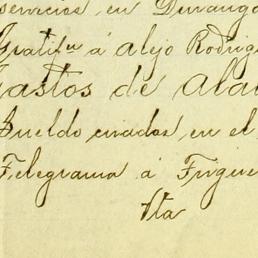 servicios en Durango
Gratifn á Alejo Rodrig
Gastos de ala
Sueldo criados en el
Telegrama á Figue